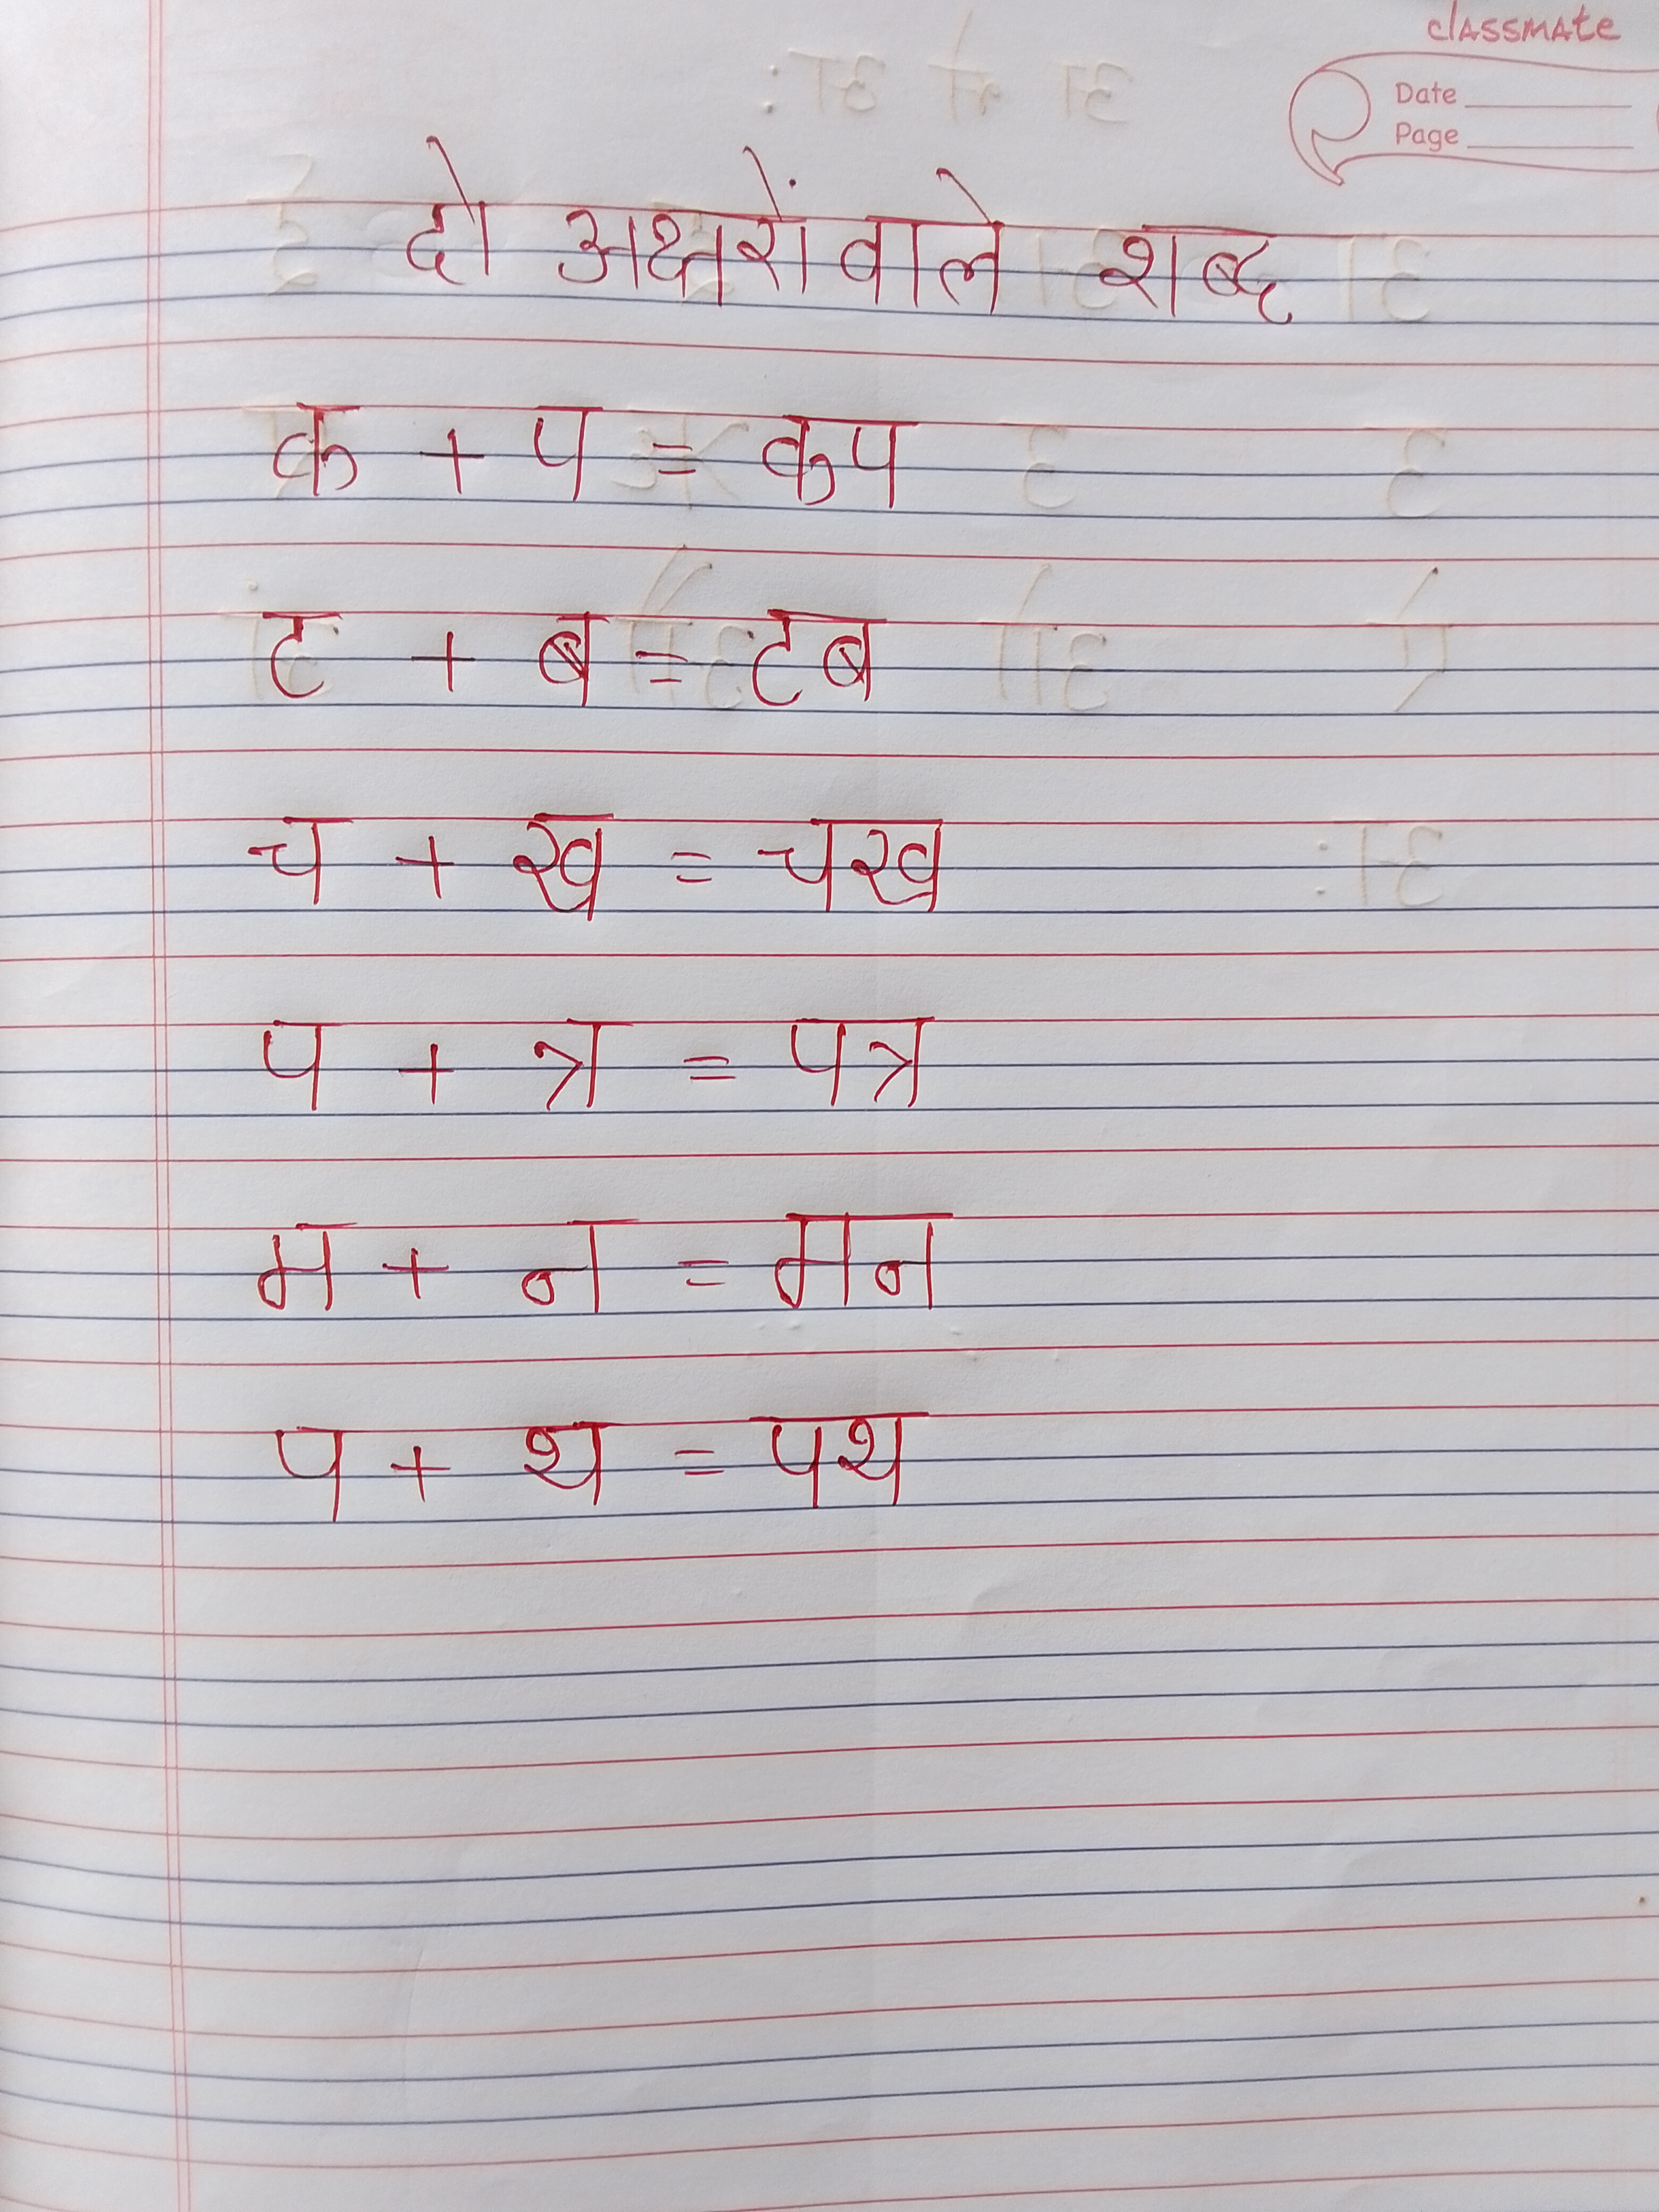 classmate
Date
Page
दो अक्षरोंवाले शब्द
क + प = कप
ट + ब = टब
च + ख = चख
प + त्र = पत्र
म + न = मन
प + थ = पथ